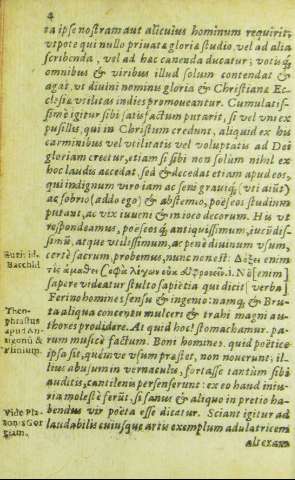 4
ta ipse nostram aut alicuius hominum requirit:
vtpote qui nullo priuatæ gloriæ studio, vel ad alia
scribenda, vel ad hæc canenda ducatur; votisq́;
omnibus & viribus illud solum contendat &
agat, vt diuini nominis gloria & Christianæ Ec-
clesiæ vtilitas indies promoueantur. Cumulatis-
simè igitur sibi satisfactum putarit, si vel vni ex
pusillis, qui in Christum credunt, aliquid ex his
carminibus vel vtilitatis vel voluptatis ad Dei
gloriam creetur, etiam si sibi non solùm nihil ex
hoc laudis accedat, sed & decedat etiam apud eos,
qui indignum viro iam ac seni grauiq́; (vti aiūt)
ac sobrio (addo ego) & abstemio, poëseos studium
putant, ac vix iuueni & in ioco decorum. His vt
respondeamus, poëseos q́; antiquissimum, iucūdis-
simū, atque vtilissimum, ac penè diuinum vsum,
certè sacrum, probemus, nunc non est:
sapere videatur stulto sapietia qui dicit [verba]
Ferino homines sensu & ingenio: namq́; & Bru-
ta aliqua concentu mulceri & trahi magni au-
thores prodidere. At quid hoc? stomachamur. pa-
rum muscè factum. Boni homines, quid poëtice
ipsa sit, quémve vsum præstet, non nouerunt, il-
lius abusum in vernaculis, fortasse tantùm sibi
auditis, cantilenis persenserunt: ex eo haud iniu-
ria molestè ferūt, si sanus & aliquo in pretio ha-
bendus vir poëta esse dicatur. Sciant igitur ad
laudabilis cuiusque artis exemplum adulatricem
Eurip. id.
Bacchid.
Theo-
phrastus
apud An-
tigonū &
Plinium.
Vide Pla-
tonis Gor
giam.